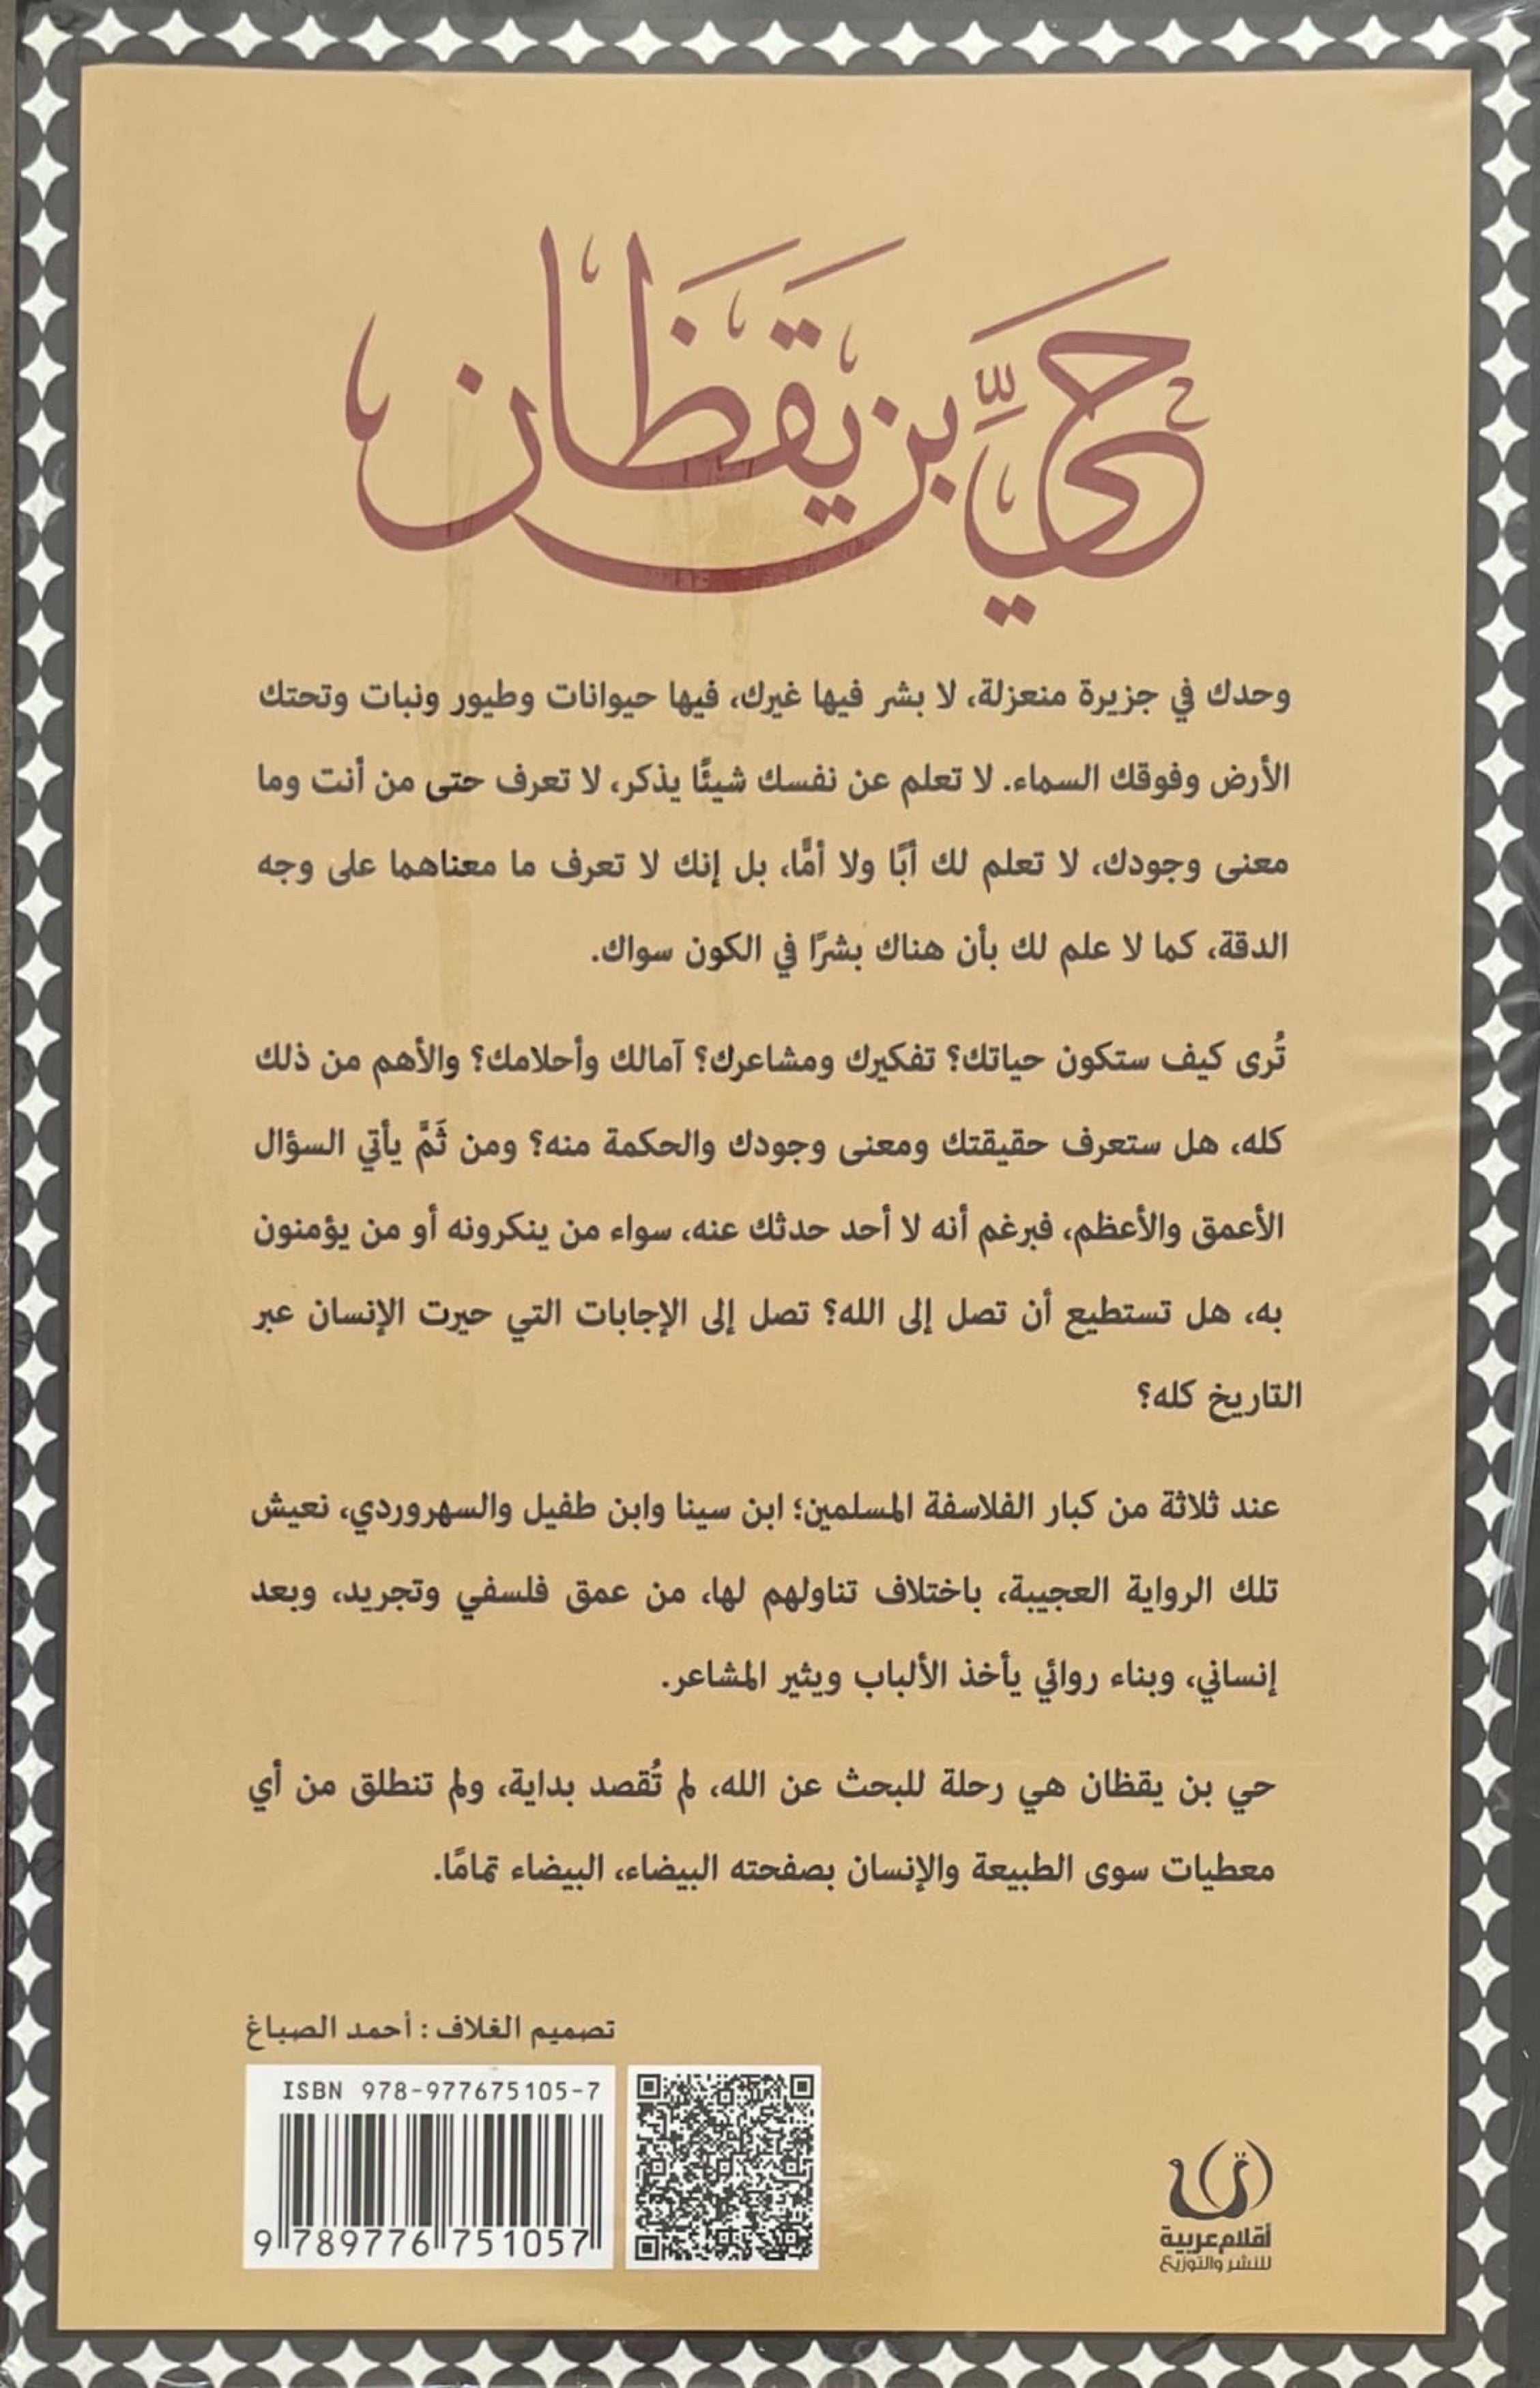 حيّ بن يقظان
وحدك في جزيرة منعزلة، لا بشر فيها غيرك، فيها حيوانات وطيور ونبات وتحتك
الأرض وفوقك السماء. لا تعلم عن نفسك شيئًا يذكر، لا تعرف حتى من أنت وما
معنى وجودك، لا تعلم لك أبًا ولا أمًّا، بل إنك لا تعرف ما معناهما على وجه
الدقة، كما لا علم لك بأن هناك بشرًا في الكون سواك.
تُرى كيف ستكون حياتك؟ تفكيرك ومشاعرك؟ آمالك وأحلامك؟ والأهم من ذلك
كله، هل ستعرف حقيقتك ومعنى وجودك والحكمة منه؟ ومن ثَمَّ يأتي السؤال
الأعمق والأعظم، فبرغم أنه لا أحد حدثك عنه، سواء من ينكرونه أو من يؤمنون
به، هل تستطيع أن تصل إلى الله؟ تصل إلى الإجابات التي حيرت الإنسان عبر
التاريخ كله؟
عند ثلاثة من كبار الفلاسفة المسلمين؛ ابن سينا وابن طفيل والسهروردي، نعيش
تلك الرواية العجيبة، باختلاف تناولهم لها، من عمق فلسفي وتجريد، وبعد
إنساني، وبناء روائي يأخذ الألباب ويثير المشاعر.
حي بن يقظان هي رحلة للبحث عن الله، لم تُقصد بداية، ولم تنطلق من أي
معطيات سوى الطبيعة والإنسان بصفحته البيضاء، البيضاء تمامًا.
تصميم الغلاف : أحمد الصباغ
ISBN 978-977675105-7
9 789776 751057
أقلام عربية
للنشر والتوزيع